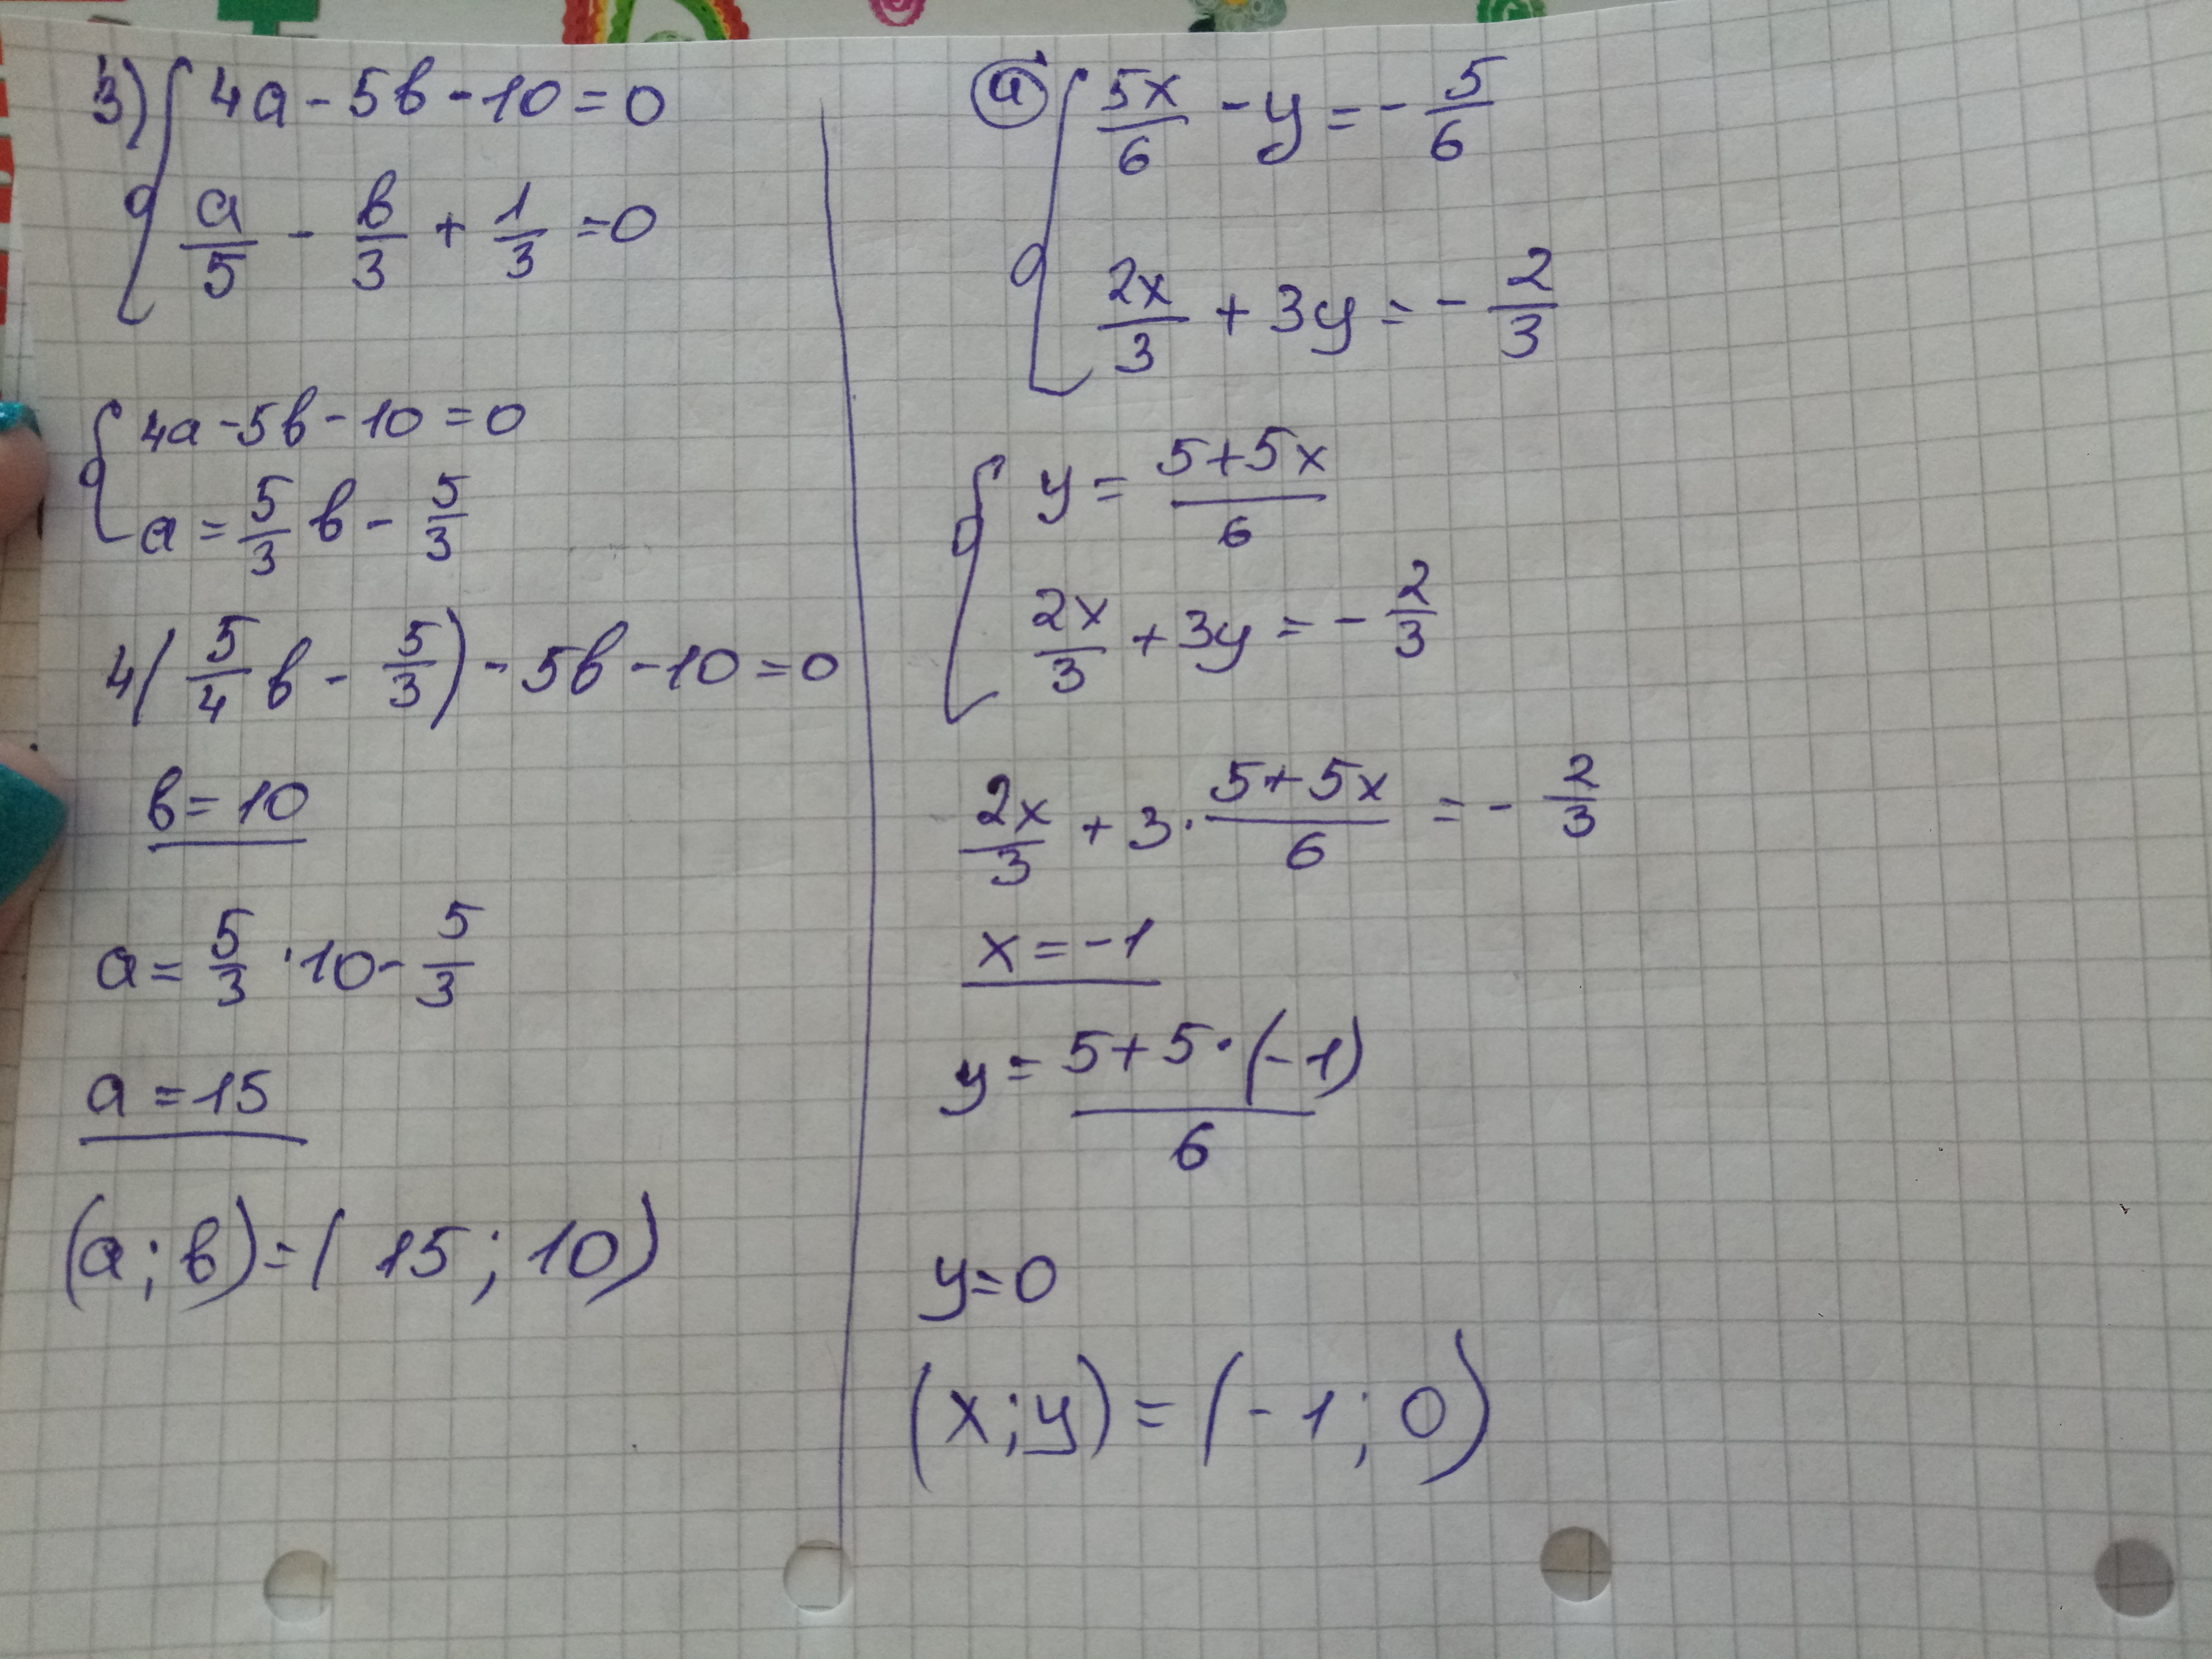 3) { 4a - 5b - 10 = 0
a/5 - b/3 + 1/3 = 0
{ 4a - 5b - 10 = 0
a = 5/3 b - 5/3
4( 5/4 b - 5/3 ) - 5b - 10 = 0
b = 10
a = 5/3 · 10 - 5/3
a = 15
(a; b) = ( 15; 10)
{ 5x/6 - y = - 5/6
2x/3 + 3y = - 2/3
{ y = (5+5x)/6
2x/3 + 3y = - 2/3
2x/3 + 3 · (5+5x)/6 = - 2/3
x = -1
y = (5+5·(-1))/6
y = 0
(x; y) = (-1; 0)